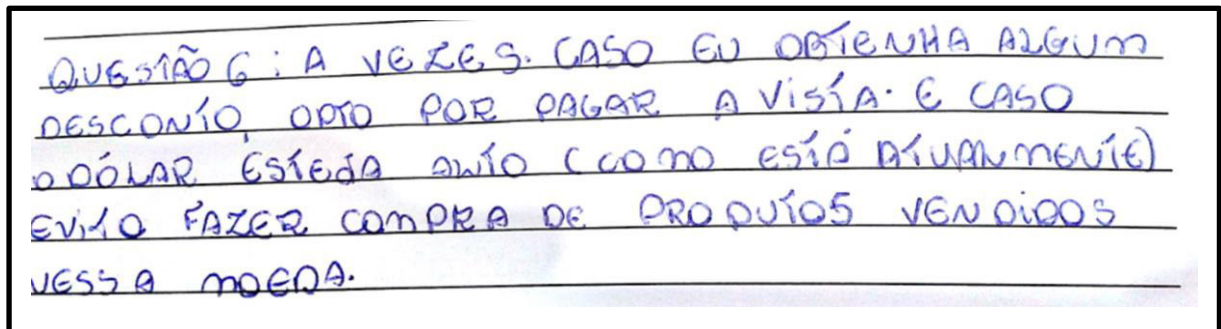 QUESTÃO 6: A VEZES. CASO EU OBTENHA ALGUM
DESCONTO, OPTO POR PAGAR A VISTA. E CASO
O DÓLAR ESTEJA ALTO (COMO ESTÁ ATUALMENTE)
EVITO FAZER COMPRA DE PRODUTOS VENDIDOS
NESSA MOEDA.